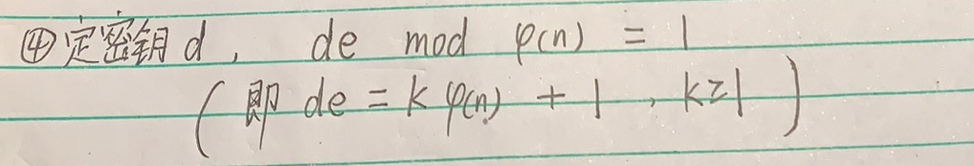 ④定密钥d, de mod φ(n) = 1
(即 de = kφ(n) + 1, k≥1)